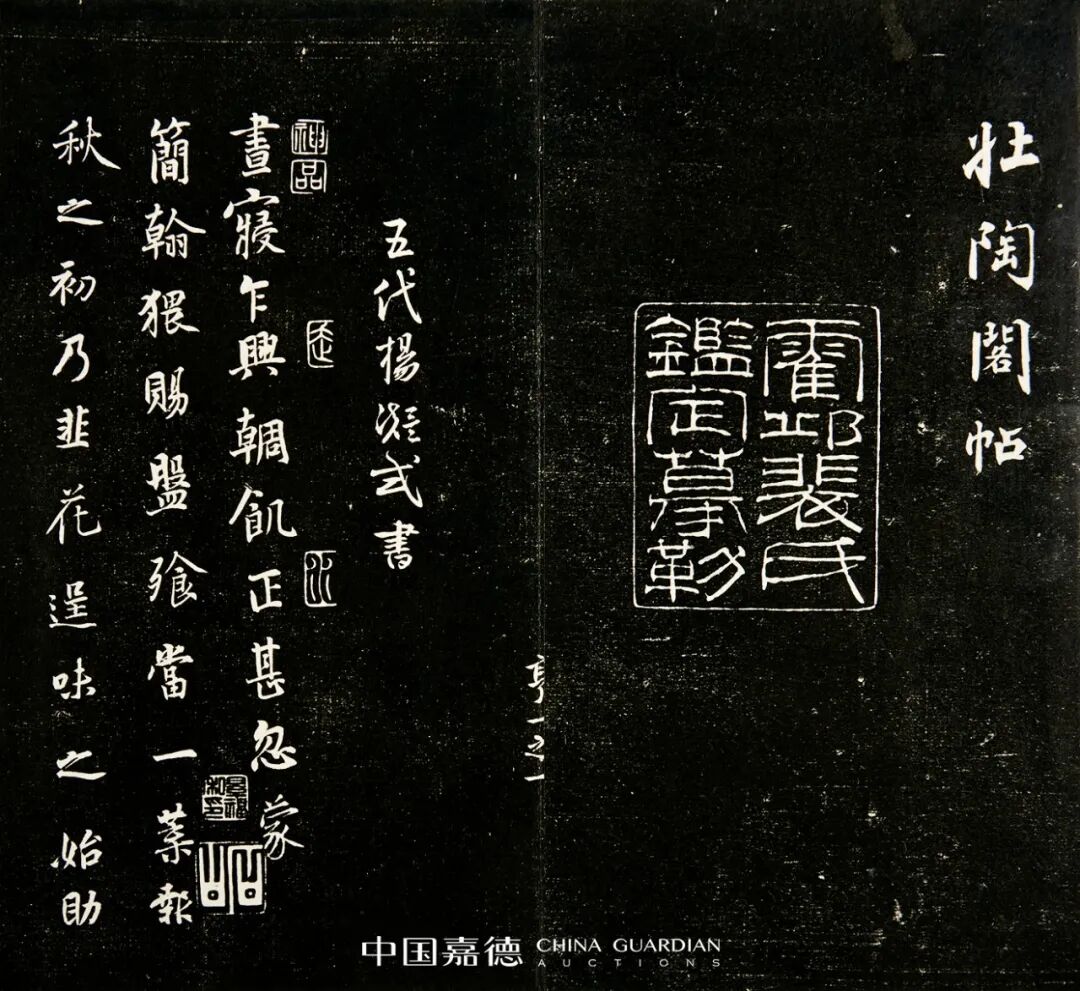 壯陶閣帖
霍邱裴氏
鑑定摹勒
亨一之一
五代楊凝式書
神品
晝寢乍興輖飢正甚忽蒙
簡翰猥賜盤飧當一葉報
秋之初乃韭花逞味之始助
中国嘉德 CHINA GUARDIAN
AUCTIONS